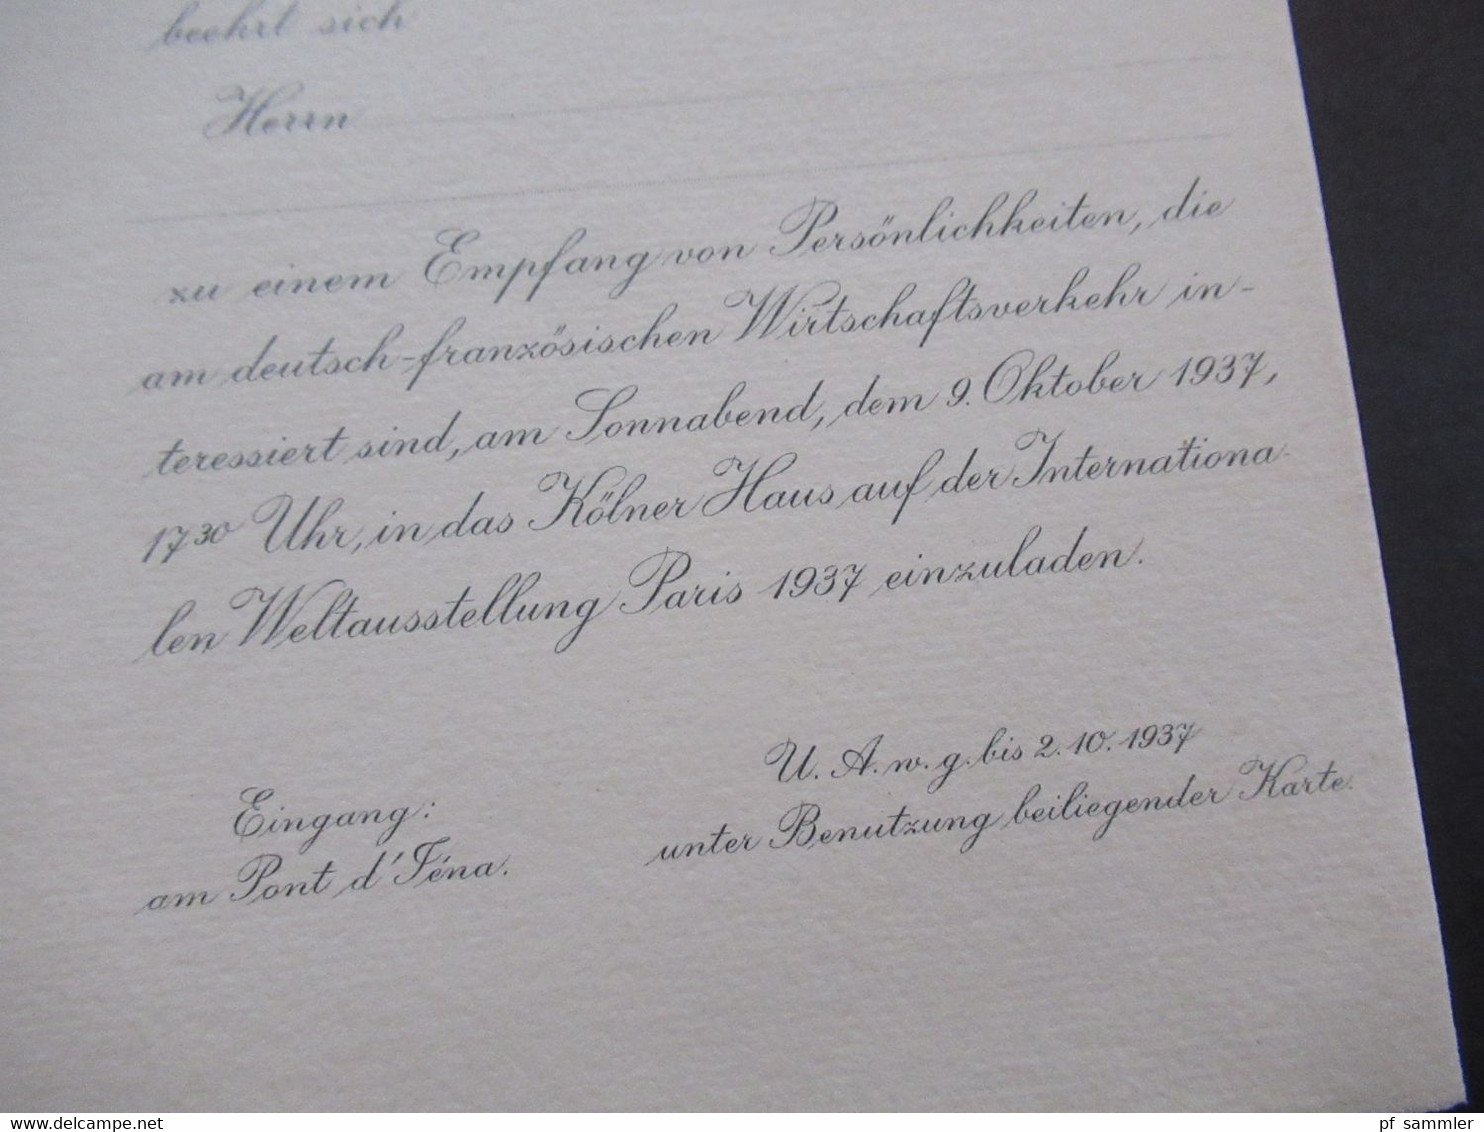 beehrt sich
Herrn
zu einem Empfang von Persönlichkeiten, die
am deutsch-französischen Wirtschaftsverkehr in-
teressiert sind, am Sonnabend, dem 9. Oktober 1937,
17³⁰ Uhr, in das Kölner Haus auf der Internationa-
len Weltausstellung Paris 1937 einzuladen.
U. A. w. g. bis 2. 10. 1937
unter Benutzung beiliegender Karte.
Eingang:
am Pont d'Jéna.
www.delcampe.net
pf_sammler